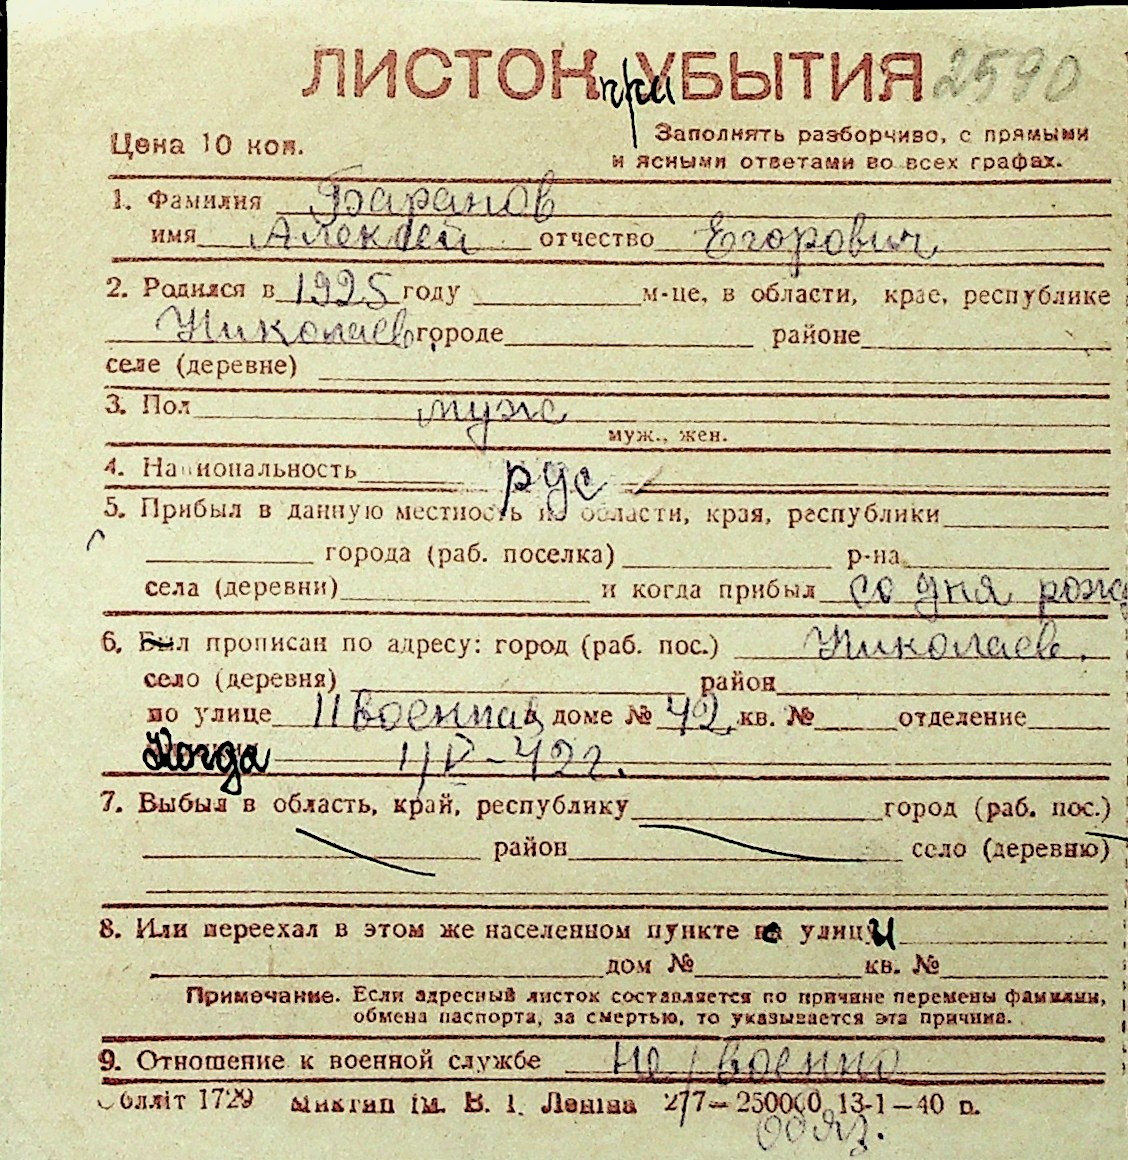 ЛИСТОК при УБЫТИЯ 2590
Цена 10 коп. Заполнять разборчиво, с прямыми
и ясными ответами во всех графах.
1. Фамилия Баранов
имя Алексей отчество Егорович
2. Родился в 1925 году м-це, в области, крае, республике
Николаев городе районе
селе (деревне)
3. Пол муж
муж., жен.
4. Национальность рус
5. Прибыл в данную местность из области, края, республики
города (раб. поселка) р-на
села (деревни) и когда прибыл со дня рожд
6. Был прописан по адресу: город (раб. пос.) Николаев.
село (деревня) район
по улице II военная, доме № 42 кв. № отделение
Когда 1/IV-42 г.
7. Выбыл в область, край, республику город (раб. пос.)
район село (деревню)
8. Или переехал в этом же населенном пункте с улицы
дом № кв. №
Примечание. Если адресный листок составляется по причине перемены фамилии,
обмена паспорта, за смертью, то указывается эта причина.
9. Отношение к военной службе не/военно
Облліт 1729 Миктип ім. В. І. Леніна 277—250000 13-1—40 р.
обяз.